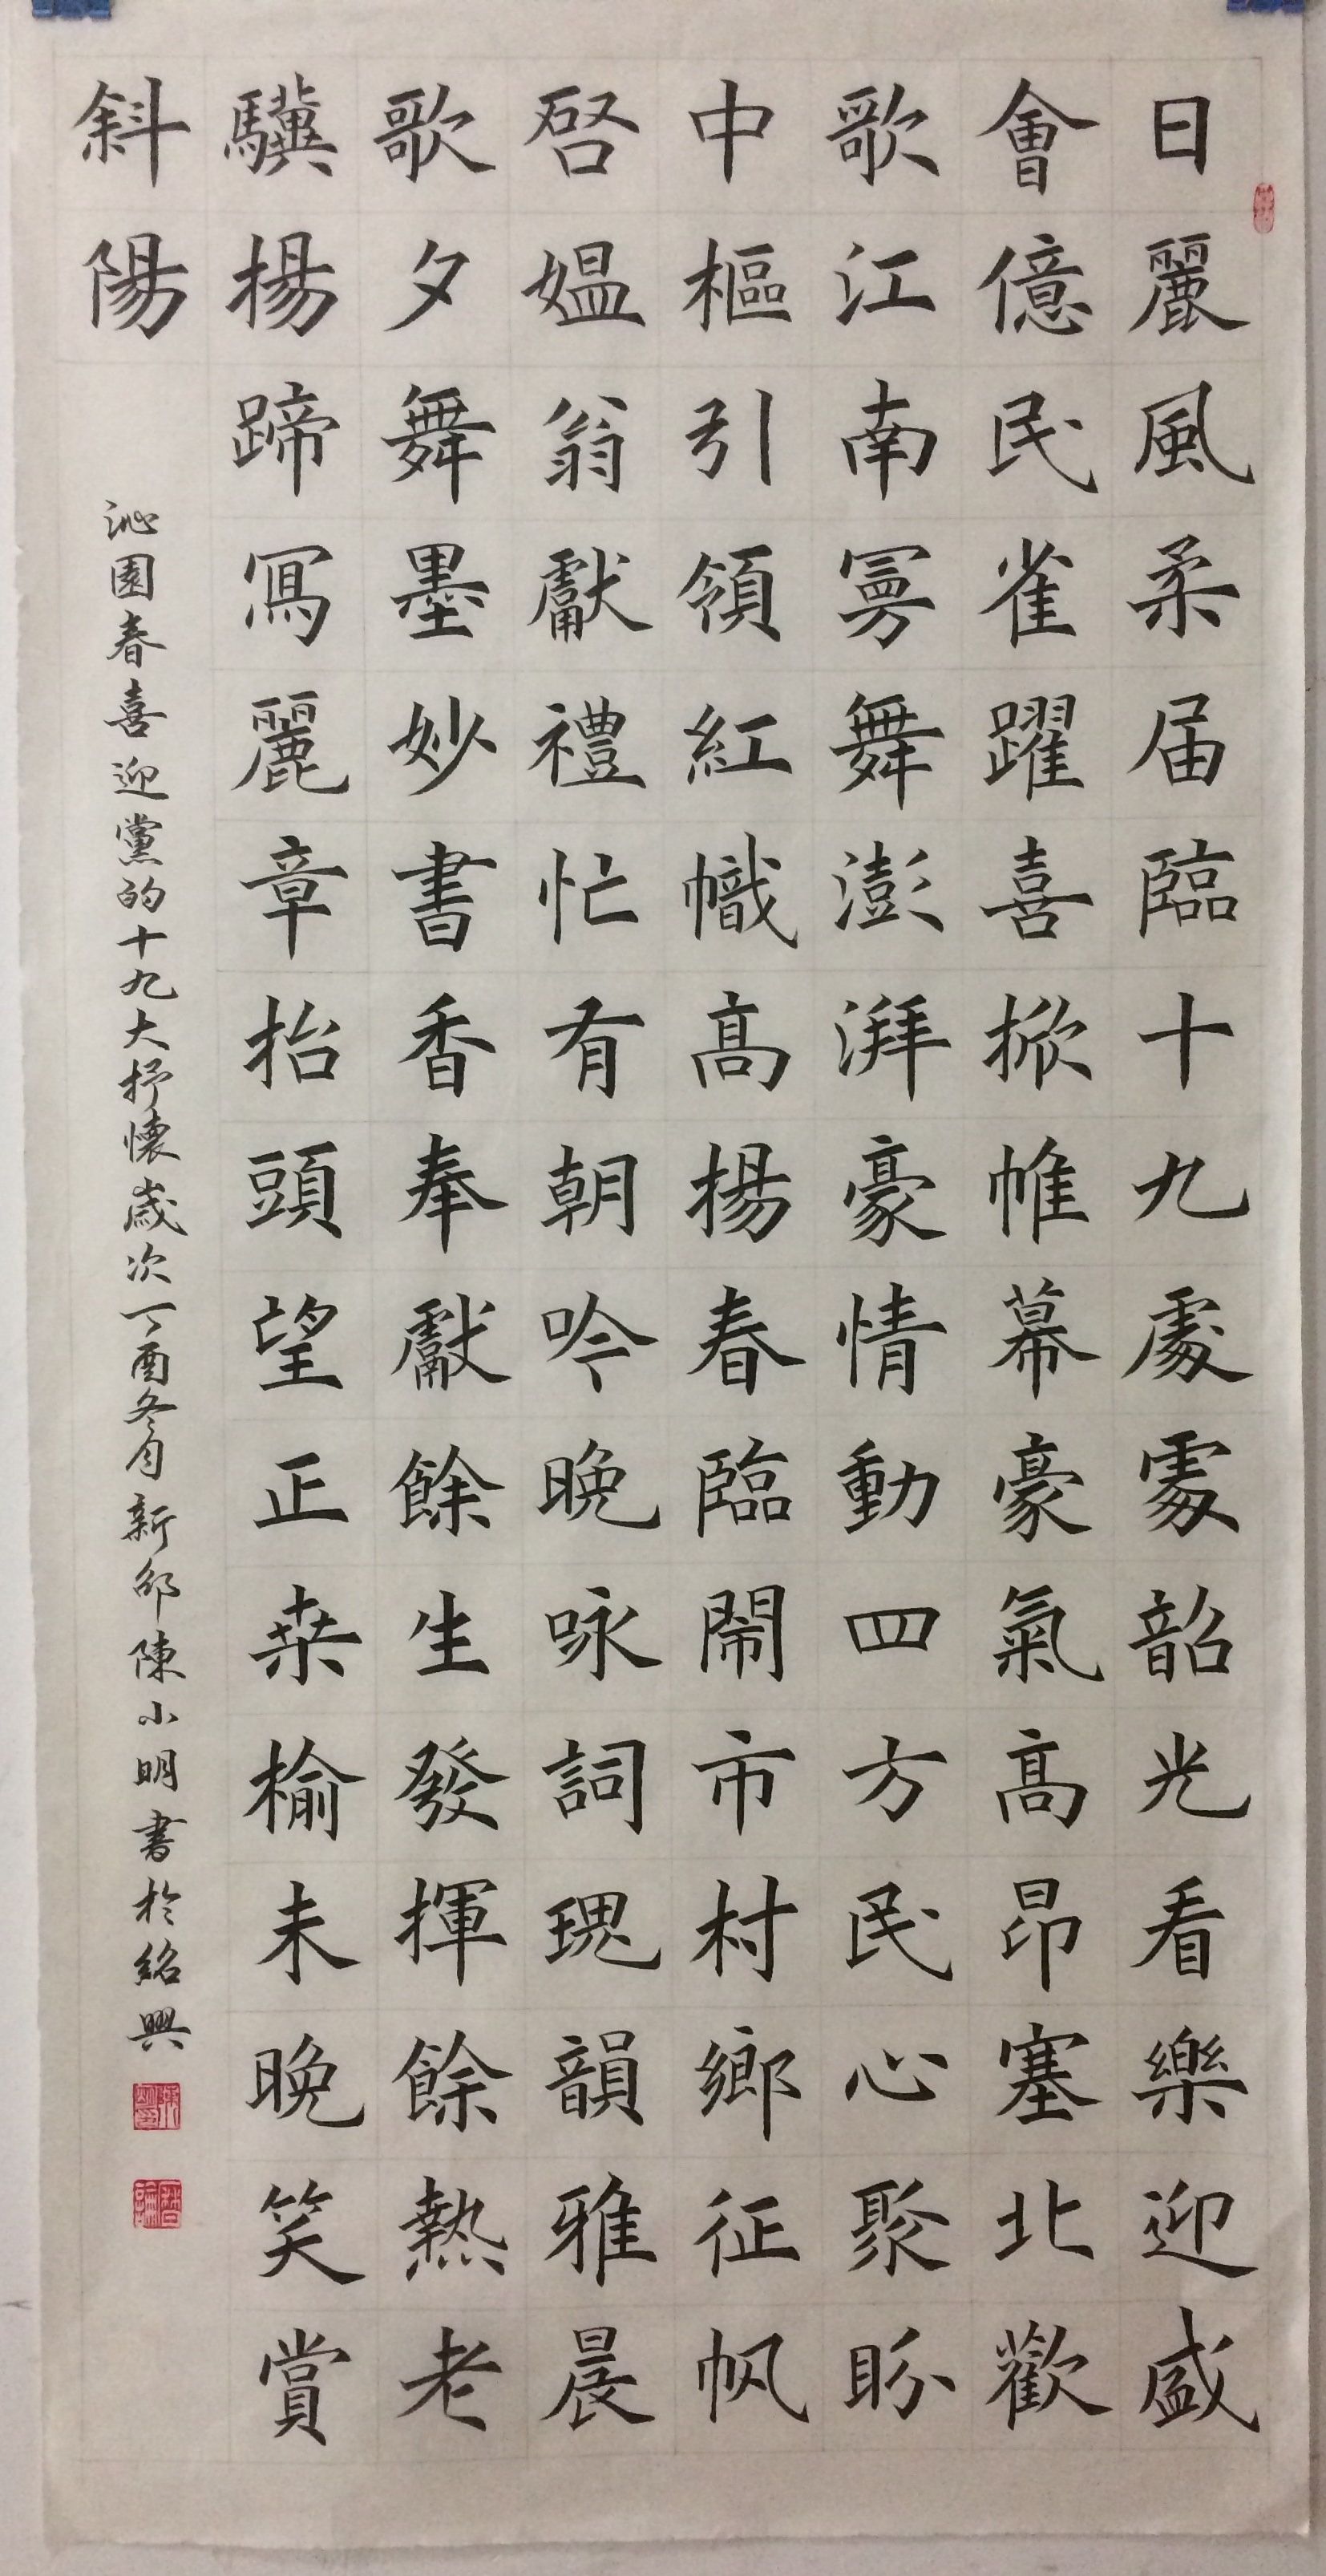 日麗風柔届臨十九處處韶光看樂迎盛
會億民雀躍喜掀帷幕豪氣高昂塞北歡
歌江南寡舞澎湃豪情動四方民心聚盼
中樞引領紅幟高揚春臨鬧市村鄉征帆
啓媪翁獻禮忙有朝吟晚咏詞瑰韻雅晨
歌夕舞墨妙書香奉獻餘生發揮餘熱老
驥揚蹄寫麗章抬頭望正桑榆未晚笑賞
斜陽
沁園春喜迎黨的十九大抒懷歲次丁酉冬月新邵陳小明書於紹興